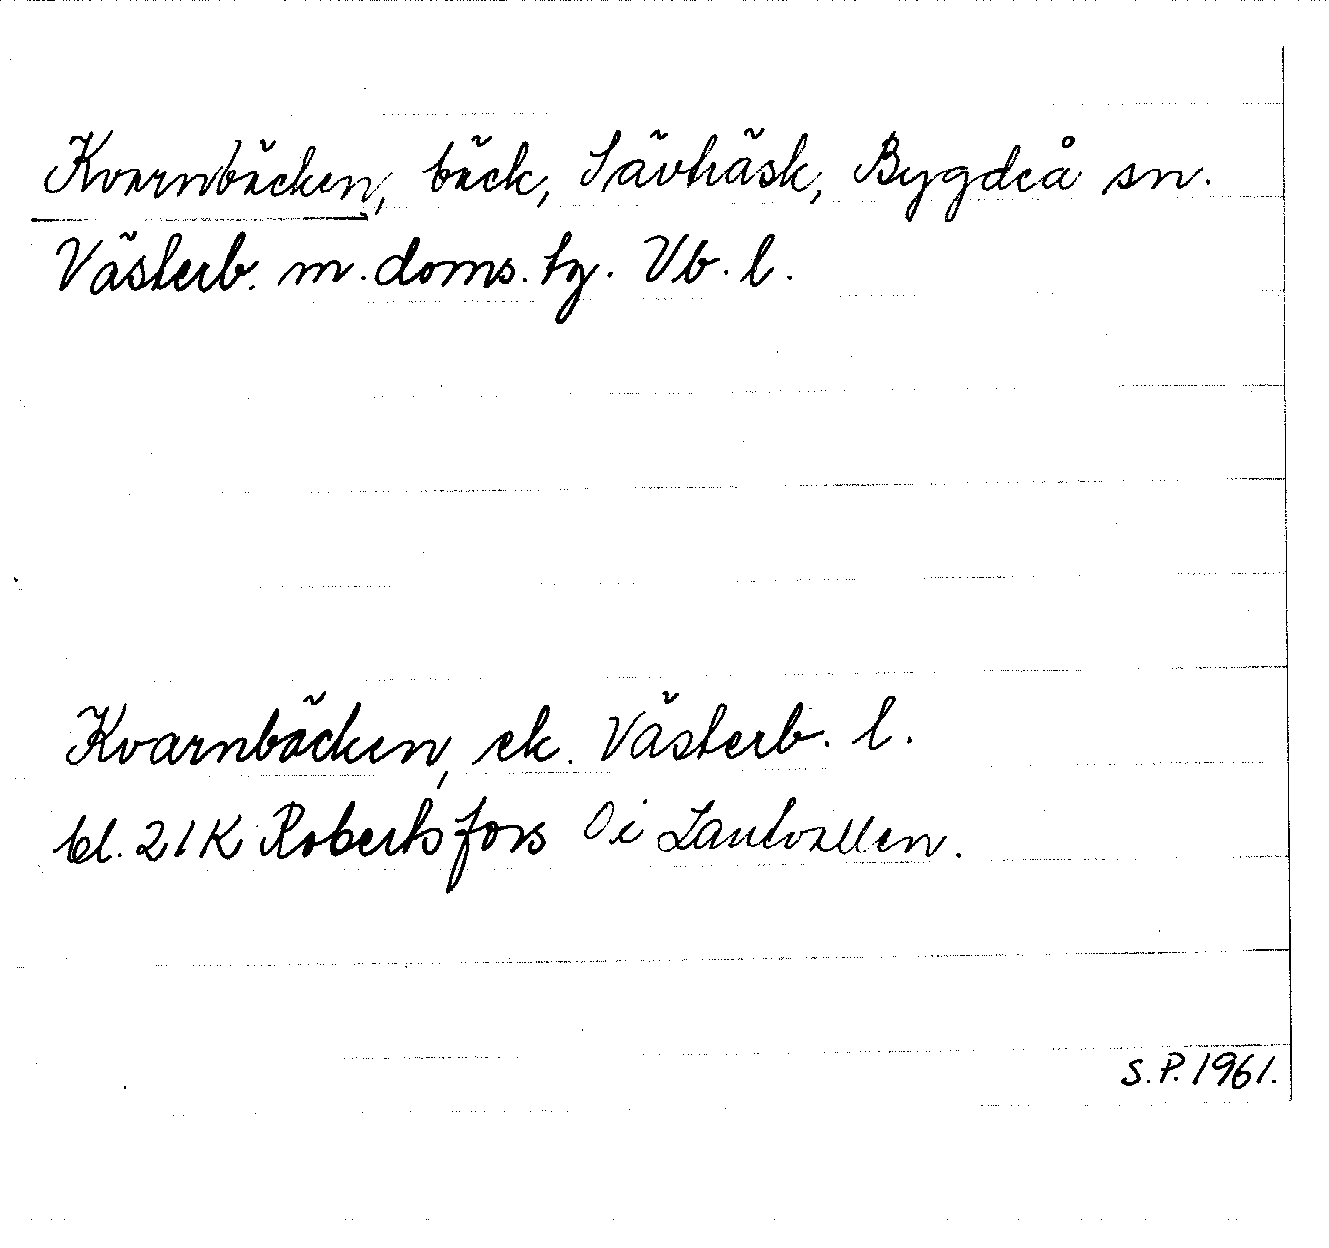 Kvarnbäcken, bäck, Sävträsk, Bygdeå sn.
Västerb. m. doms. tg. Vb. l.
Kvarnbäcken, ek. Västerb. l.
bl. 21K Robertsfors 0i
S.P. 1961.